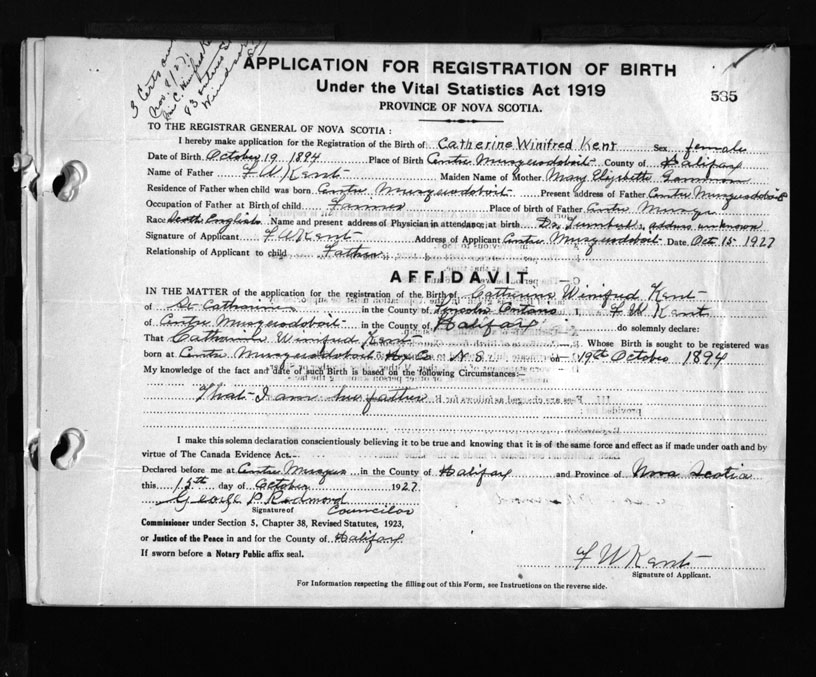 3 Certs
Nov. 8/27.
Windsor
APPLICATION FOR REGISTRATION OF BIRTH
Under the Vital Statistics Act 1919
PROVINCE OF NOVA SCOTIA.
535
TO THE REGISTRAR GENERAL OF NOVA SCOTIA :
I hereby make application for the Registration of the Birth of Catherine Winifred Kent Sex female
Date of Birth October 19 1894 Place of Birth Centre Musquodoboit County of Halifax
Name of Father F W Kent Maiden Name of Mother Mary Elizabeth
Residence of Father when child was born Centre Musquodoboit Present address of Father Centre Musquodoboit
Occupation of Father at Birth of child Farmer Place of birth of Father Centre Musquo
Race English Name and present address of Physician in attendance at birth Dr. address unknown
Signature of Applicant F W Kent Address of Applicant Centre Musquodoboit Date Oct 15 1927
Relationship of Applicant to child Father
AFFIDAVIT
IN THE MATTER of the application for the registration of the Birth of Catherine Winifred Kent
of St Catharines in the County of Lincoln Ontario I, F W Kent
of Centre Musquodoboit in the County of Halifax do solemnly declare:
That Catherine Winifred Kent Whose Birth is sought to be registered was
born at Centre Musquodoboit Hx Co N S on 19th October 1894
My knowledge of the fact and date of such Birth is based on the following Circumstances:—
That I am her father
I make this solemn declaration conscientiously believing it to be true and knowing that it is of the same force and effect as if made under oath and by
virtue of The Canada Evidence Act.
Declared before me at Centre Musquo in the County of Halifax and Province of Nova Scotia
this 15th day of October 1927
George P Redmond
Signature of Councilor
Commissioner under Section 5, Chapter 38, Revised Statutes, 1923,
or Justice of the Peace in and for the County of Halifax
If sworn before a Notary Public affix seal.
F W Kent
Signature of Applicant.
For Information respecting the filling out of this Form, see Instructions on the reverse side.